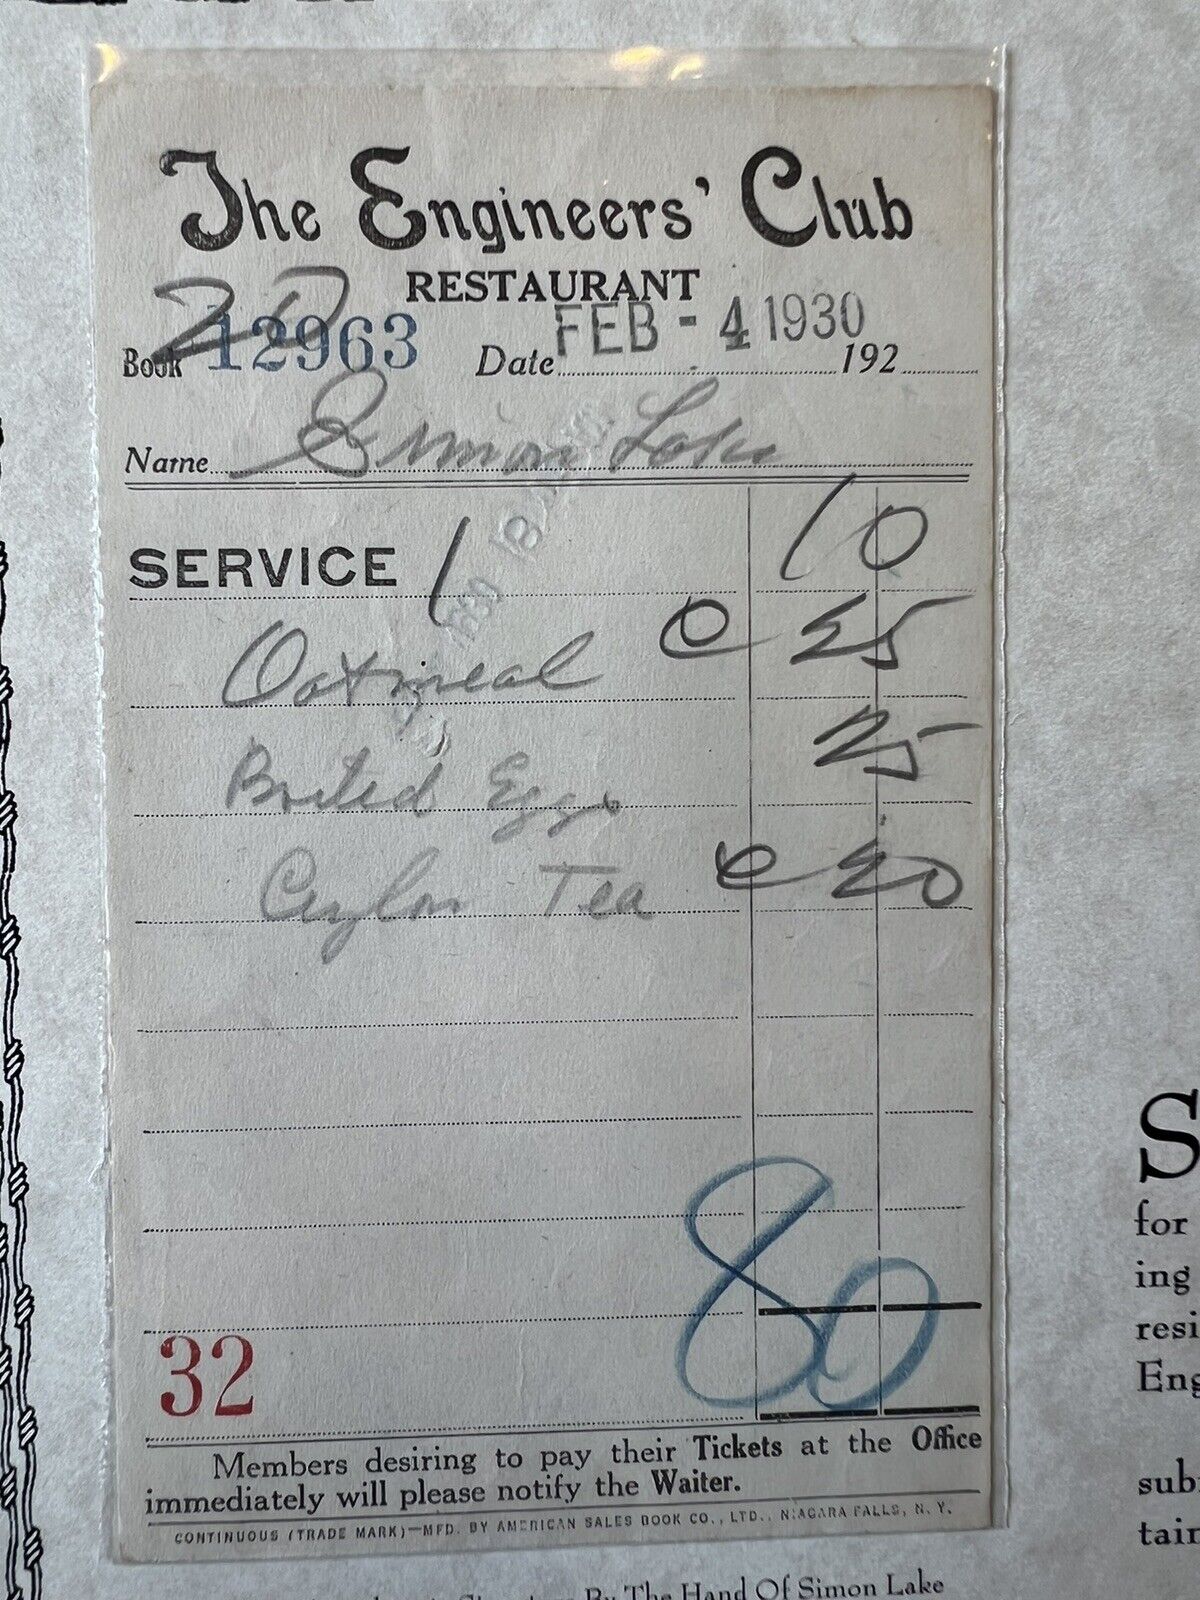 The Engineers' Club
RESTAURANT
20
Book 12963 Date FEB - 4 1930 192
Name Simon Lake
SERVICE 1 10
Oatmeal C 25
Boiled Eggs 25
Ceylon Tea C 20
80
32
Members desiring to pay their Tickets at the Office
immediately will please notify the Waiter.
CONTINUOUS (TRADE MARK)—MFD. BY AMERICAN SALES BOOK CO., LTD., NIAGARA FALLS, N. Y.
By The Hand Of Simon Lake
S
for
ing
resi
Eng
sub
tain